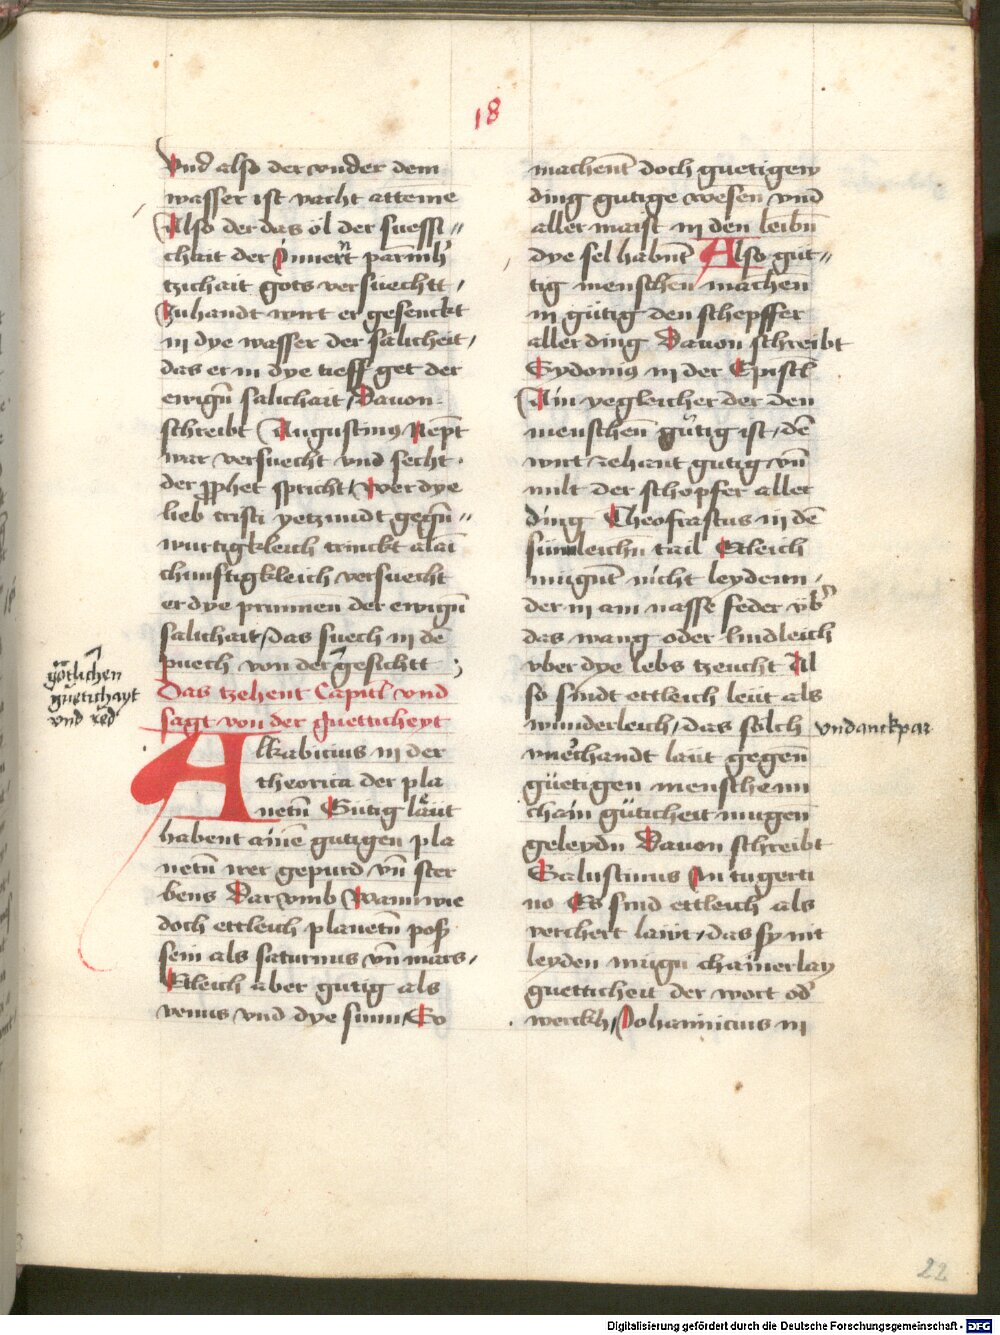 18
Vnd also der vnder dem
wasser ist nacht atteme
Also der das öl der suessi〃
chait der Innerñ parmh'
tzichait gots versuechtt /
Zuhandt wirt er gesenckt
in dye wasser der sälicheit /
das er in dye tieff get der
ewign̄ salichait / Dauon
schreibt Augustinus Nept
war versuecht vnd secht
der prophet spricht / wer dye
lieb cristi yetzundt gegn̄〃
wurtigkleich trinckt alāi
chunftigkleich versuecht
er dye prunnen der ewign̄
salichait / das suech in dē
puech von der gesichtt ;
götlichen
guetichayt
vnd red
Das tzehent Capitl vnd
sagt von der guetticheyt
Alkabicius in der
theorica der pla
netn̄ Gütig läut
habent ainē gutigen pla
netn̄ irer gepurd vn̄ ster
bens Darvmb Wann wie
doch ettleich planetn̄ poß
sein als saturnus vn̄ mars /
Etleich aber gutig als
venus vnd dye sunn / So
machent doch guetigew
ding gutige wesen vnd
aller maist in den leibn̄
dye sel habnt Also güt〃
tig menschen machen
in gütig den schepffer
aller ding Dauon schreibt
Sydonius in der Epistl
Ain yegleicher der den
menschen gütig ist / dē
wirt zehant gutig vn̄
milt der schopfer aller
ding Theofrastus in dē
sünleichn̄ tail Etleich
mugnt nicht leydenn /
der in am nasse feder vb'
das wang oder lindleich
vber dye lebs tzeucht Al
so sindt ettleich leüt als
wunderleich / das sölch vndanckpar
vnerchandt läut gegen
güetigen menschenn
chain güticheit mugen
geleydn Dauon schreibt
Salustinus In iugerti
no Es sind ettleich als
verchert läwt / das sy nit
leyden mugn chainerlay
guetticheit der wort od'
werckh / Johannicius in
22
Digitalisierung gefördert durch die Deutsche Forschungsgemeinschaft - DFG